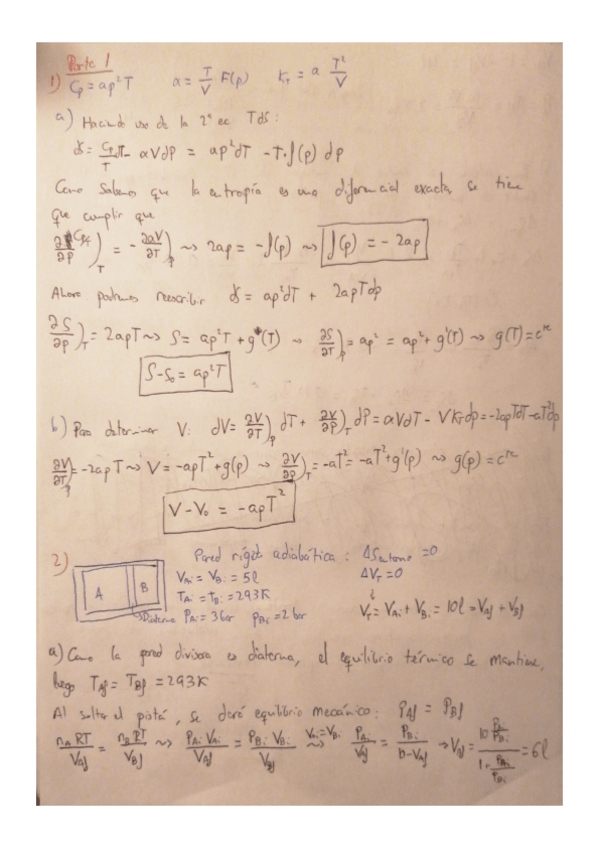 Parte 1
1) Cp = ap²T   α = T/V F(p)   K_T = a T²/V
a) Haciendo uso de la 2ª ec TdS:
dS = Cp/T dT - αVdP = ap²dT - T·f(p) dp
Como sabemos que la entropía es una diferencial exacta, se tiene
que cumplir que
= - ∂αV/∂T)_p ⇝ 2ap = -f(p) ⇝ f(p) = -2ap
Ahora podemos reescribir dS = ap²dT + 2apTdp
∂S/∂p)_T = 2apT ⇝ S = ap²T + g(T) ⇝ ∂S/∂T)_p = ap² = ap² + g'(T) ⇝ g(T) = cte
S - S₀ = ap²T
b) Para determinar V: dV = ∂V/∂T)_p dT + ∂V/∂p)_T dP = αVdT - VK_Tdp = -2apTdT - aT²dp
∂V/∂T)_p = -2apT ⇝ V = -apT² + g(p) ⇝ ∂V/∂p)_T = -aT² = -aT² + g'(p) ⇝ g(p) = cte
V - V₀ = -apT²
2) Pared rígida adiabática: ΔS entorno = 0
A B
V_Ai = V_Bi = 5l   ΔV_T = 0
T_Ai = T_Bi = 293K   ↓
Diaterma P_Ai = 3bar   P_Bi = 2bar   V_T = V_Ai + V_Bi = 10l = V_Af + V_Bf
a) Como la pared divisora es diaterma, el equilibrio térmico se mantiene,
luego T_Af = T_Bf = 293K
Al soltar el pistón, se dará equilibrio mecánico: P_Af = P_Bf
n_A RT/V_Af = n_B RT/V_Bf ⇝ P_Ai V_Ai/V_Af = P_Bi V_Bi/V_Bf ⇝ V_Ai = V_Bi P_Ai/V_Af = P_Bi/10-V_Af → V_Af = = 6l